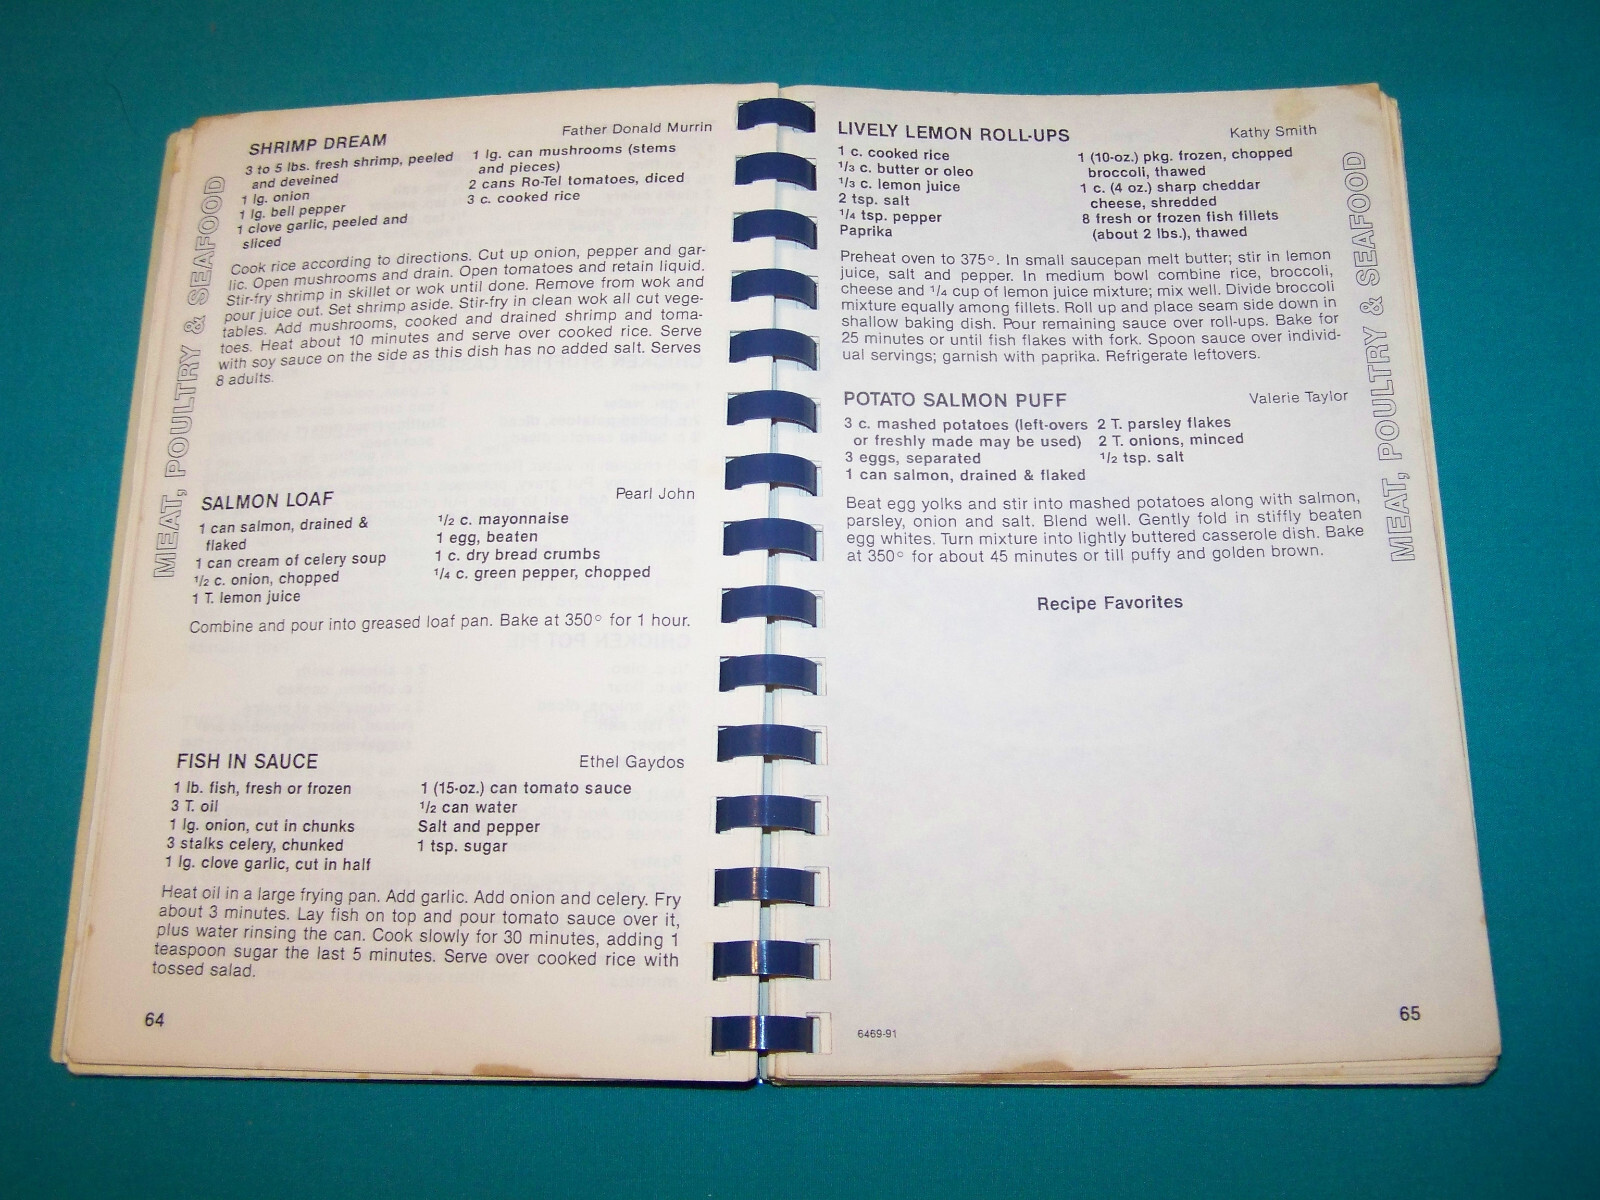 MEAT, POULTRY & SEAFOOD
SHRIMP DREAM
Father Donald Murrin
3 to 5 lbs. fresh shrimp, peeled
and deveined
1 lg. onion
1 lg. bell pepper
1 clove garlic, peeled and
sliced
1 lg. can mushrooms (stems
and pieces)
2 cans Ro-Tel tomatoes, diced
3 c. cooked rice
Cook rice according to directions. Cut up onion, pepper and gar-
lic. Open mushrooms and drain. Open tomatoes and retain liquid.
Stir-fry shrimp in skillet or wok until done. Remove from wok and
pour juice out. Set shrimp aside. Stir-fry in clean wok all cut vege-
tables. Add mushrooms, cooked and drained shrimp and toma-
toes. Heat about 10 minutes and serve over cooked rice. Serve
with soy sauce on the side as this dish has no added salt. Serves
8 adults.
SALMON LOAF
Pearl John
1 can salmon, drained &
flaked
1 can cream of celery soup
1/2 c. onion, chopped
1 T. lemon juice
1/2 c. mayonnaise
1 egg, beaten
1 c. dry bread crumbs
1/4 c. green pepper, chopped
Combine and pour into greased loaf pan. Bake at 350° for 1 hour.
FISH IN SAUCE
Ethel Gaydos
1 lb. fish, fresh or frozen
3 T. oil
1 lg. onion, cut in chunks
3 stalks celery, chunked
1 lg. clove garlic, cut in half
1 (15-oz.) can tomato sauce
1/2 can water
Salt and pepper
1 tsp. sugar
Heat oil in a large frying pan. Add garlic. Add onion and celery. Fry
about 3 minutes. Lay fish on top and pour tomato sauce over it,
plus water rinsing the can. Cook slowly for 30 minutes, adding 1
teaspoon sugar the last 5 minutes. Serve over cooked rice with
tossed salad.
64
LIVELY LEMON ROLL-UPS
Kathy Smith
1 c. cooked rice
1/3 c. butter or oleo
1/3 c. lemon juice
2 tsp. salt
1/4 tsp. pepper
Paprika
1 (10-oz.) pkg. frozen, chopped
broccoli, thawed
1 c. (4 oz.) sharp cheddar
cheese, shredded
8 fresh or frozen fish fillets
(about 2 lbs.), thawed
Preheat oven to 375°. In small saucepan melt butter; stir in lemon
juice, salt and pepper. In medium bowl combine rice, broccoli,
cheese and 1/4 cup of lemon juice mixture; mix well. Divide broccoli
mixture equally among fillets. Roll up and place seam side down in
shallow baking dish. Pour remaining sauce over roll-ups. Bake for
25 minutes or until fish flakes with fork. Spoon sauce over individ-
ual servings; garnish with paprika. Refrigerate leftovers.
POTATO SALMON PUFF
Valerie Taylor
3 c. mashed potatoes (left-overs
or freshly made may be used)
3 eggs, separated
1 can salmon, drained & flaked
2 T. parsley flakes
2 T. onions, minced
1/2 tsp. salt
Beat egg yolks and stir into mashed potatoes along with salmon,
parsley, onion and salt. Blend well. Gently fold in stiffly beaten
egg whites. Turn mixture into lightly buttered casserole dish. Bake
at 350° for about 45 minutes or till puffy and golden brown.
Recipe Favorites
MEAT, POULTRY & SEAFOOD
6469-91
65